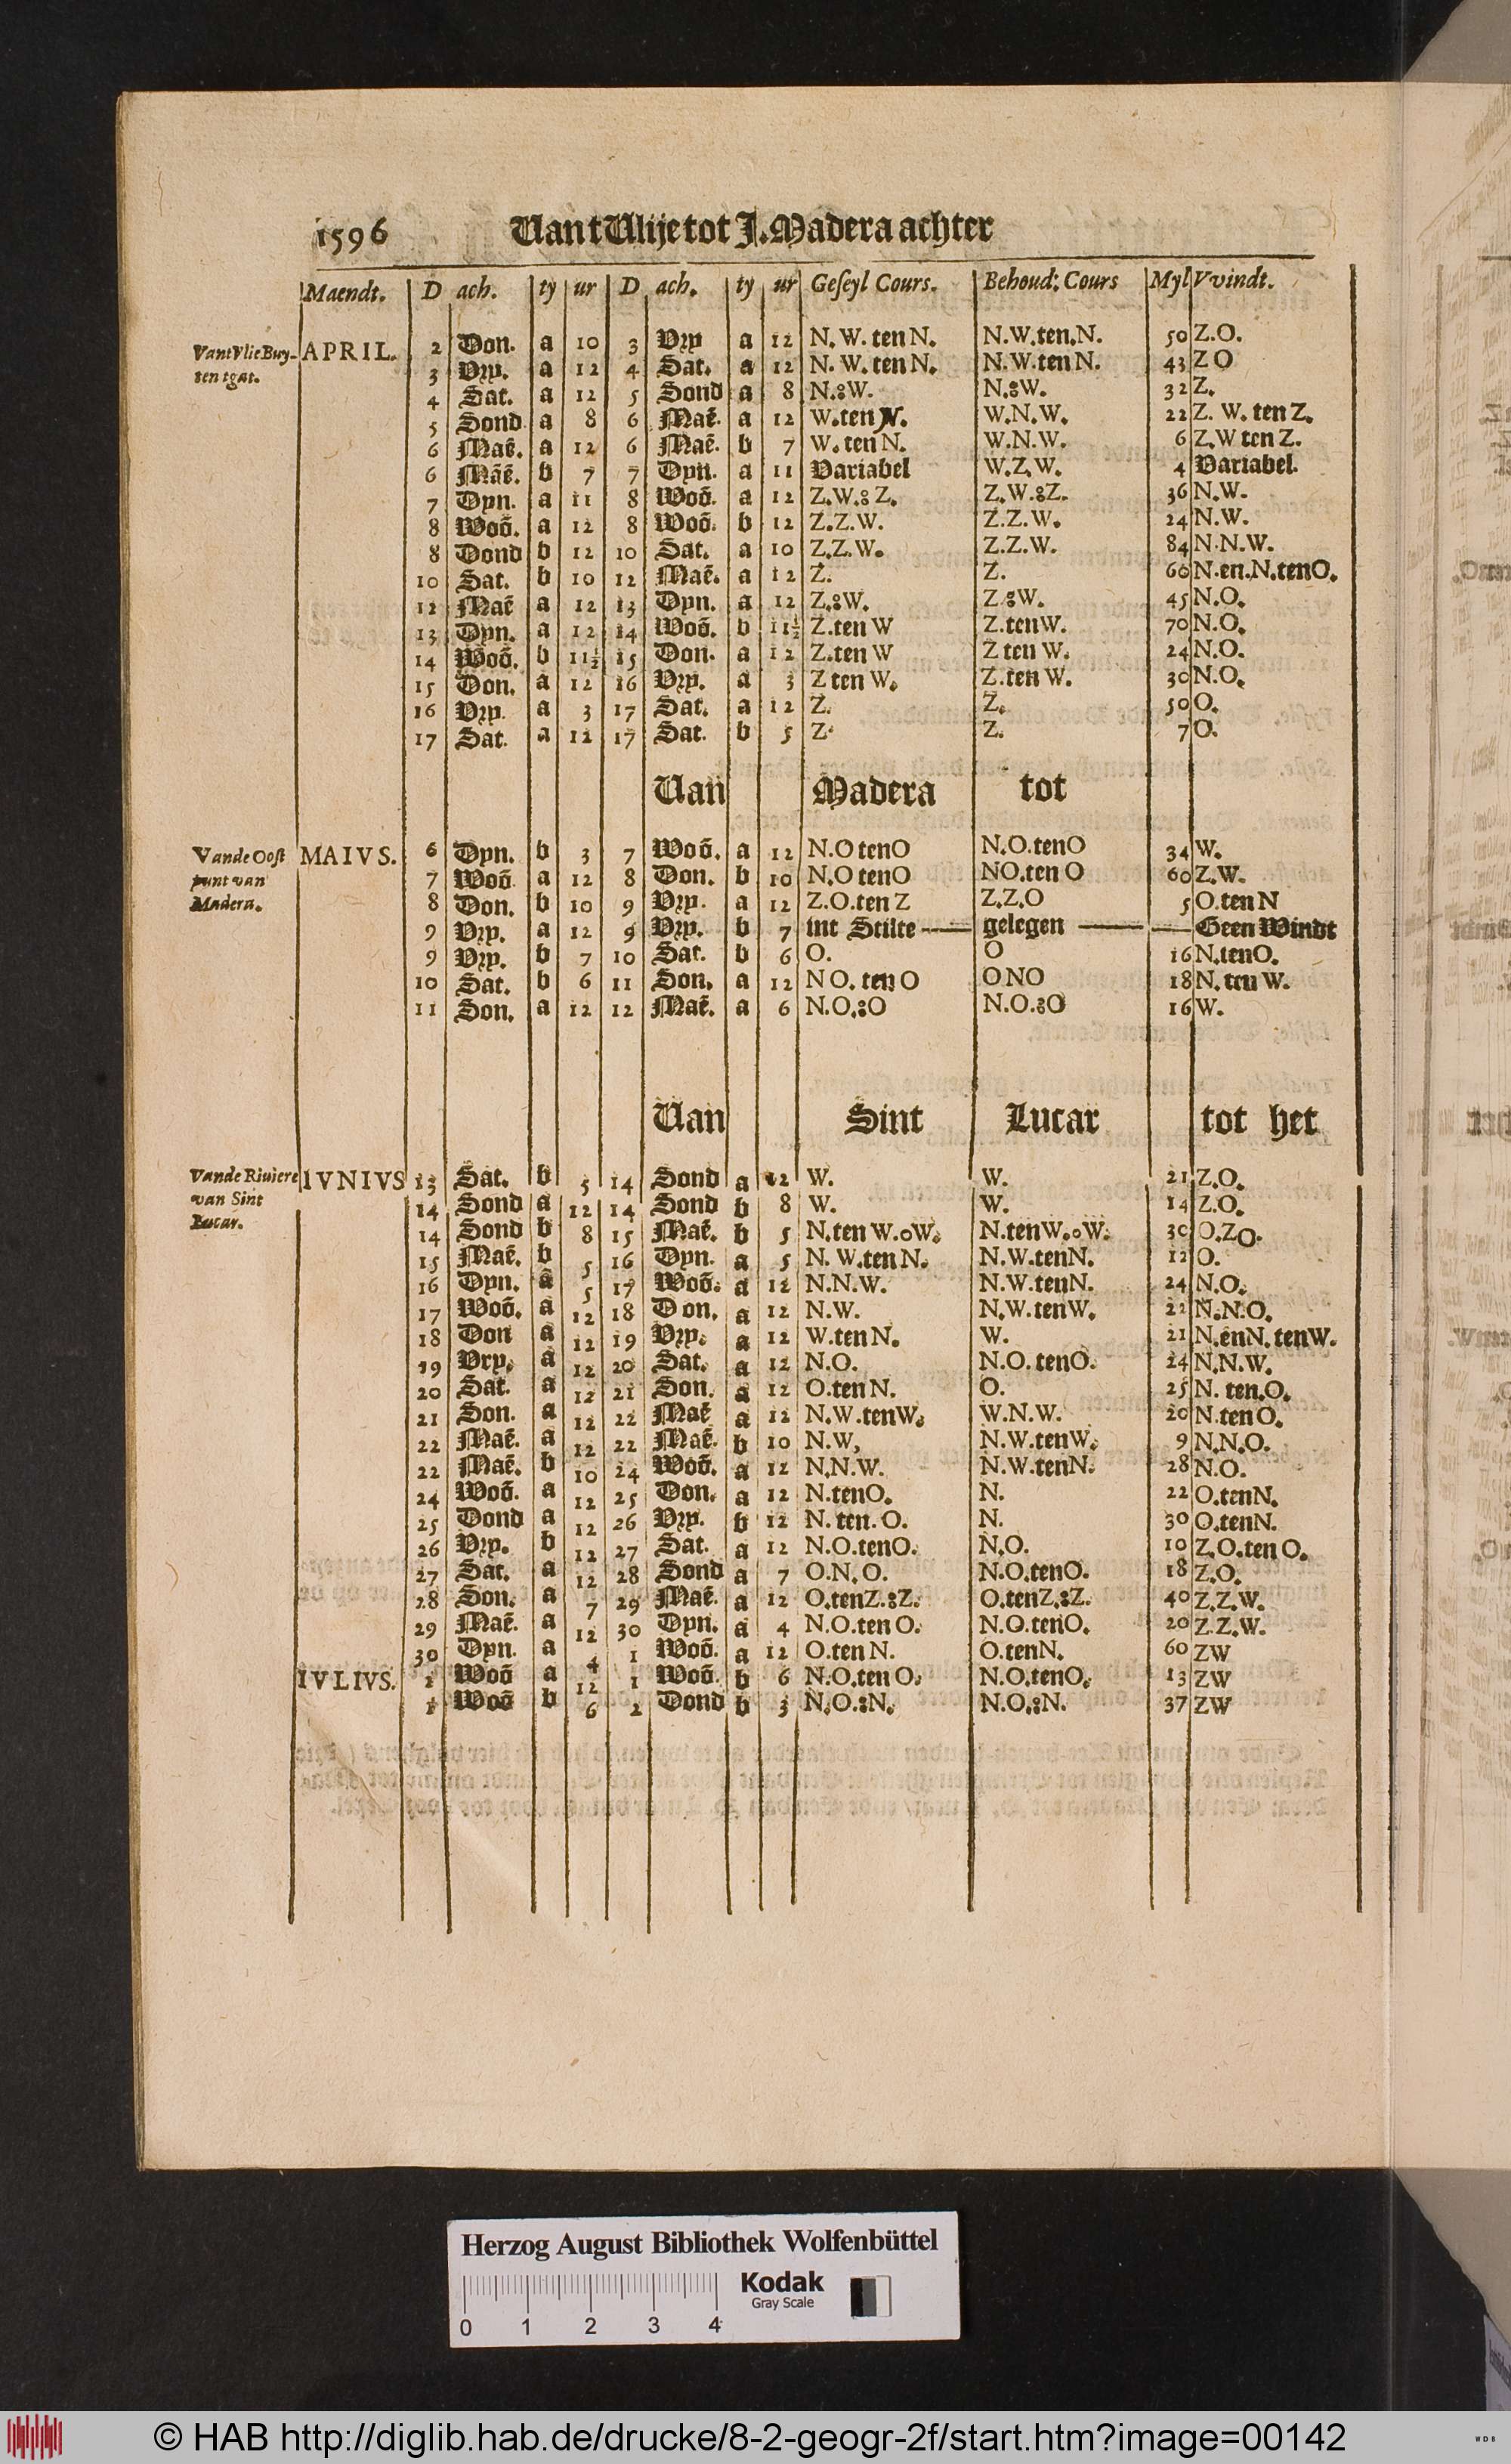 1596 Van t Vlije tot J. Madera achter
Maendt. D ach. ty ur D ach. ty ur Geseyl Cours. Behoud; Cours Myl Vvindt.
Vant Vlie Buy- APRIL. 2 Don. a 10 3 Vry a 12 N. W. ten N. N.W.ten.N. 50 Z.O.
ten tgat. 3 Vry. a 12 4 Sat. a 12 N. W. ten N. N.W.ten N. 43 Z O
4 Sat. a 12 5 Sond a 8 N.:W. N.:W. 32 Z.
5 Sond a 8 6 Maē. a 12 W.ten N. W.N.W. 22 Z. W. ten Z.
6 Maē. a 12 6 Maē. b 7 W. ten N. W.N.W. 6 Z.W ten Z.
6 Maē. b 7 7 Dyn. a 11 Variabel W.Z.W. 4 Variabel.
7 Dyn. a 11 8 Woō. a 12 Z.W.:Z. Z.W.:Z. 36 N.W.
8 Woō. a 12 8 Woō. b 12 Z.Z.W. Z.Z.W. 24 N.W.
8 Dond b 12 10 Sat. a 10 Z.Z.W. Z.Z.W. 84 N.N.W.
10 Sat. b 10 12 Maē. a 12 Z. Z. 60 N.en.N.tenO.
12 Maē a 12 13 Dyn. a 12 Z.:W. Z:W. 45 N.O.
13 Dyn. a 12 14 Woō. b 11½ Z.ten W Z.tenW. 70 N.O.
14 Woō. b 11½ 15 Don. a 12 Z.ten W Z ten W. 24 N.O.
15 Don. a 12 16 Vry. a 3 Z ten W. Z.ten W. 30 N.O.
16 Vry. a 3 17 Sat. a 12 Z. Z. 50 O.
17 Sat. a 12 17 Sat. b 5 Z. Z. 7 O.
Van Madera tot
Vande Oost MAIVS. 6 Dyn. b 3 7 Woō. a 12 N.O tenO N.O.tenO 34 W.
punt van 7 Woō a 12 8 Don. b 10 N.O tenO NO.ten O 60 Z.W.
Madera. 8 Don. b 10 9 Vry. a 12 Z.O.ten Z Z.Z.O 5 O.ten N
9 Vry. a 12 9 Vry. b 7 int Stilte — gelegen — — Geen Windt
9 Vry. b 7 10 Sat. b 6 O. O 16 N.tenO.
10 Sat. b 6 11 Son. a 12 N O. ten O O NO 18 N. ten W.
11 Son. a 12 12 Maē. a 6 N.O.:O N.O.:O 16 W.
Van Sint Lucar tot het
Vande Riviere IVNIVS 13 Sat. b 5 14 Sond a 12 W. W. 21 Z.O.
van Sint 14 Sond a 12 14 Sond b 8 W. W. 14 Z.O.
Lucar. 14 Sond b 8 15 Maē. b 5 N.ten W.oW. N.tenW.oW. 30 O.ZO.
15 Maē. b 5 16 Dyn. a 5 N. W.ten N. N.W.tenN. 12 O.
16 Dyn. a 5 17 Woō. a 12 N.N.W. N.W.tenN. 24 N.O.
17 Woō. a 12 18 Don. a 12 N.W. N.W.tenW. 22 N.N.O.
18 Don a 12 19 Vry. a 12 W.ten N. W. 21 N.enN. tenW.
19 Vry. a 12 20 Sat. a 12 N.O. N.O. tenO. 24 N.N.W.
20 Sat. a 12 21 Son. a 12 O.ten N. O. 25 N. ten.O.
21 Son. a 12 22 Maē a 12 N.W.tenW. W.N.W. 20 N.tenO.
22 Maē. a 12 22 Maē. b 10 N.W, N.W.tenW. 9 N.N.O.
22 Maē. b 10 24 Woō. a 12 N.N.W. N.W.tenN. 28 N.O.
24 Woō. a 12 25 Don. a 12 N.tenO. N. 22 O.tenN.
25 Dond a 12 26 Vry. b 12 N. ten. O. N. 30 O.tenN.
26 Vry. b 12 27 Sat. a 12 N.O.tenO. N.O. 10 Z.O.ten O.
27 Sat. a 12 28 Sond a 7 O.N.O. N.O.tenO. 18 Z.O.
28 Son. a 7 29 Maē. a 12 O.tenZ.:Z. O.tenZ.:Z. 40 Z.Z.W.
29 Maē. a 12 30 Dyn. a 4 N.O.ten O. N.O.tenO. 20 Z.Z.W.
30 Dyn. a 4 1 Woō. a 12 O.ten N. O.tenN. 60 ZW
IVLIVS. 1 Woō a 12 1 Woō. b 6 N.O.ten O. N.O.tenO. 13 ZW
1 Woō b 6 2 Dond b 3 N.O.:N. N.O.:N. 37 ZW
Herzog August Bibliothek Wolfenbüttel
Kodak
Gray Scale
0 1 2 3 4
© HAB http://diglib.hab.de/drucke/8-2-geogr-2f/start.htm?image=00142
WDB